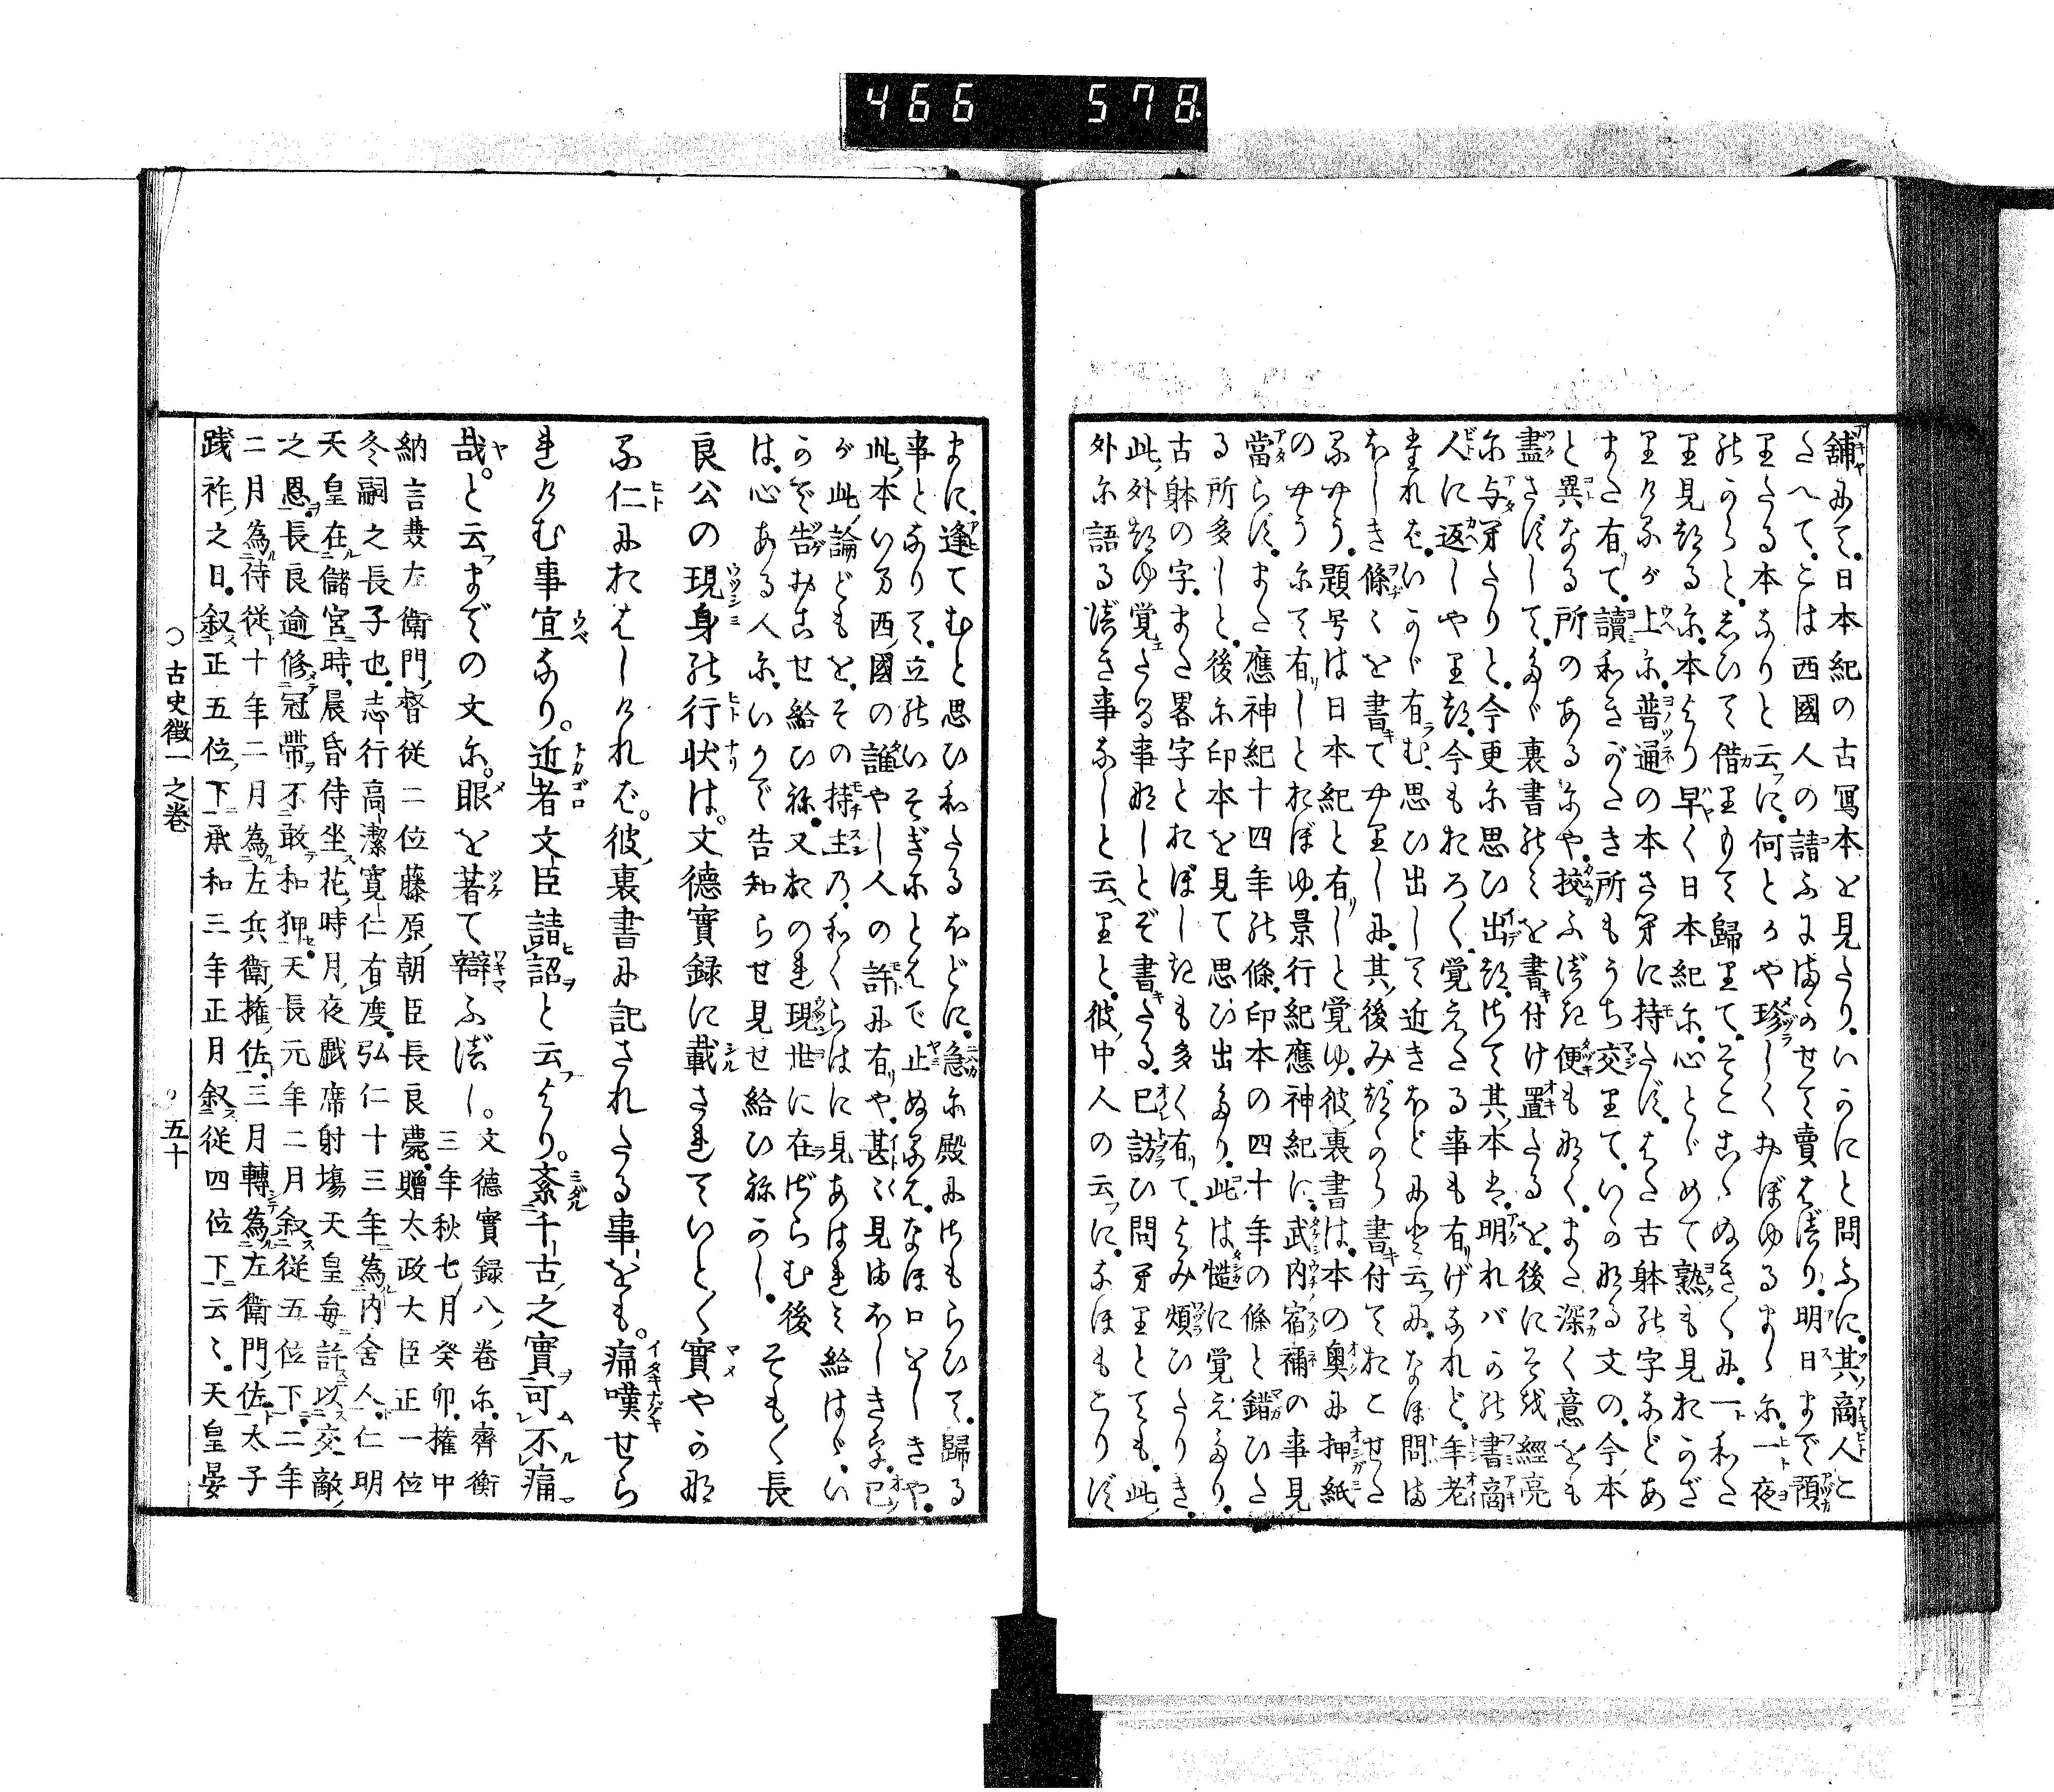 466 578
舗にて。日本紀の古冩本を見たり。いかにと問ふに。其商人こ
たへて。こは西國人の請ふまにまのせて賣はべり。明日まで預
りたる本なりと云に。何とかや珍しくおぼゆるまゝに。一夜
のからと。しひて借りもて歸りて。そここゝぬきくに。一わた
り見たるに。本より早く日本紀に。心とゞめて熟も見れのざ
りけるが上に。普通の本さへに持たず。はた古躰の字などあ
また有て。讀わきがたき所もうち交りて。いかなる文の。今本
と異なる所のあるにや。挍ふべき便もなく。また深く意をも
盡さずして。たゞ裏書のミを書付け置たるを。後にそを經亮
に与へたりと。今更に思ひ出たれて其本は。明ればかの書商
人に返しやりたり。今もおろく覚えたる事も有げなれど。年老
たれば。いかゞ有む。思ひ出して近きほどにと云に。なほ問ま
ほしき條〻を書てやりしに。其後みづから書付ておこせた
るやう。題号は日本紀と有しと覚ゆ。彼裏書は。本の奥に押紙
のやうにて有しとおぼゆ。景行紀應神紀に。武内宿禰の事見
當らず。また應神紀十四年の條。印本の四十年の條と錯ひた
る所多しと。後に印本を見て思ひ出たり。此は慥に覚えたり。
古躰の字。また畧字とおぼしきも多く有て。よみ煩ひたりき。
此外たゆ覚たる事なしとぞ書たる。已訪ひ問へりとても。此
外に語るべき事なしと云へりと。彼中人の云に。なほもこりず
まに。逢てむと思ひわたるほどに。急に殿にたもらひて。歸る
事となりて。立のいそぎにとみで止ぬるは。なほ口をしきや。
此本いま西國の誰やし人の許に有や。甚〻見まほしき事。已
が此論どもを。その持主の。わくらはに見あはせミ給はゞ。い
かで告おこせ給ひね。又おのれ現世に在ざらむ後
は。心ある人に。いかで告知らせ見せ給ひねかし。そも〳〵長
良公の現身の行状は。文德實録に載されていと〳〵實やかな
る仁におはしければ。彼裏書に記されたる事をも。痛嘆せら
れけむ事宜なり。近者文臣請詔と云より。紊千古之實可不痛
哉。と云までの文に。眼を著て辯ふべし。文德實録八卷に。齊衡
三年秋七月癸卯。權中
納言兼左衛門督從二位藤原朝臣長良薨。贈太政大臣正一位
冬嗣之長子也。志行高潔寛仁有度。弘仁十三年為内舍人。仁明
天皇在儲宮時。晨昏侍坐。花時月夜戯席射塲天皇毎許以交敵
之恩。長良逾修冠帶不敢和狎。天長元年二月叙從五位下。二年
二月為侍從十年二月為左兵衛權佐。三月轉為左衛門佐。太子
踐祚之日。叙正五位下承和三年正月叙從四位下云〻。天皇晏
〇古史徴一之巻
五十